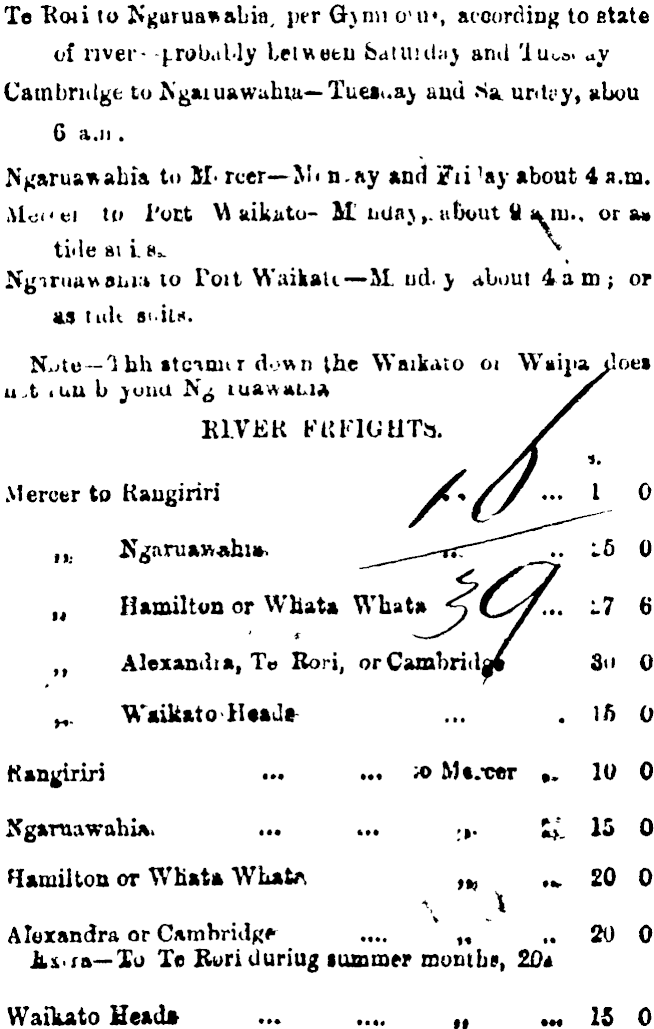 Te Rori to Ngaruawahia, per Gymnotus, according to state
of river—probably between Saturday and Tuesday
Cambridge to Ngaruawahia—Tuesday and Saturday, abou
6 a.m.
Ngaruawahia to Mercer—Monday and Friday about 4 a.m.
Mercer to Port Waikato—Monday, about 9 a.m., or as
tide suits.
Ngaruawahia to Port Waikato—Monday about 4 a m; or
as tide suits.
Note—Thh steamer down the Waikato or Waipa does
not run beyond Ngaruawahia
RIVER FREIGHTS.
s.
Mercer to Rangiriri ... 1 0
„ Ngaruawahia. ... .. 0
„ Hamilton or Whata Whata ... 6
„ Alexandra, Te Rori, or Cambridge 30 0
„ Waikato Heads ... . 15 0
Rangiriri ... ... to Mercer „ 10 0
Ngaruawahia. ... ... „ 15 0
Hamilton or Whata Whata „ .. 20 0
Alexandra or Cambridge .... „ .. 20 0
Extra—To Te Rori during summer months, 20s
Waikato Heads ... .... „ ... 15 0
39